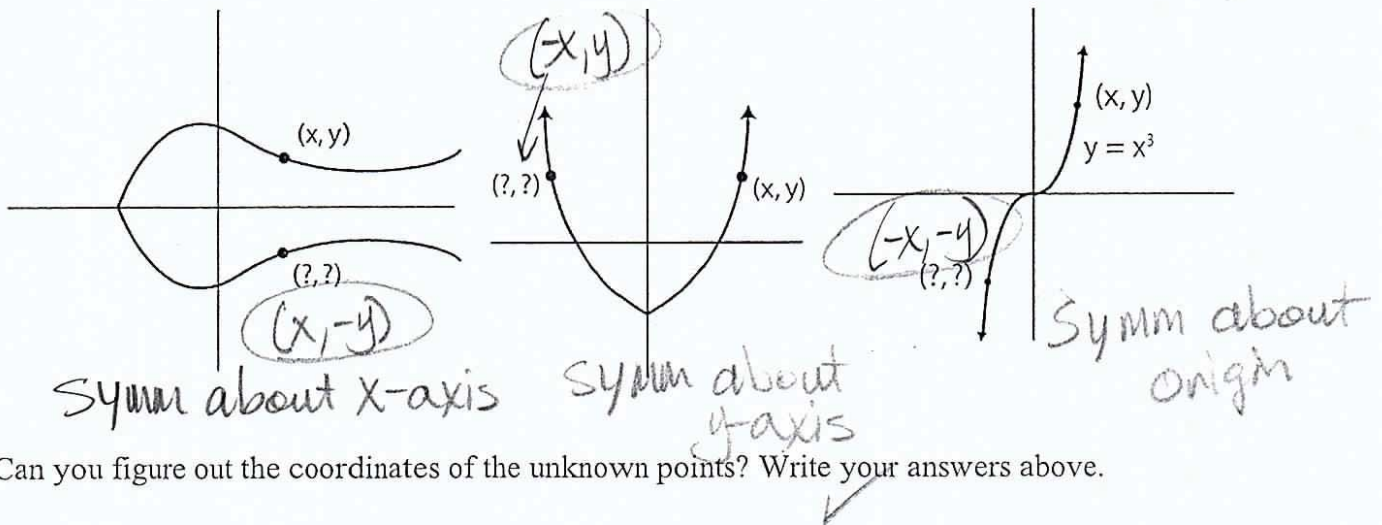 (x, y)
(?, ?)
(x, -y)
Symm about x-axis
(-x, y)
(?, ?)
(x, y)
Symm about
y-axis
(x, y)
y = x³
(-x, -y)
(?, ?)
Symm about
origin
Can you figure out the coordinates of the unknown points? Write your answers above.